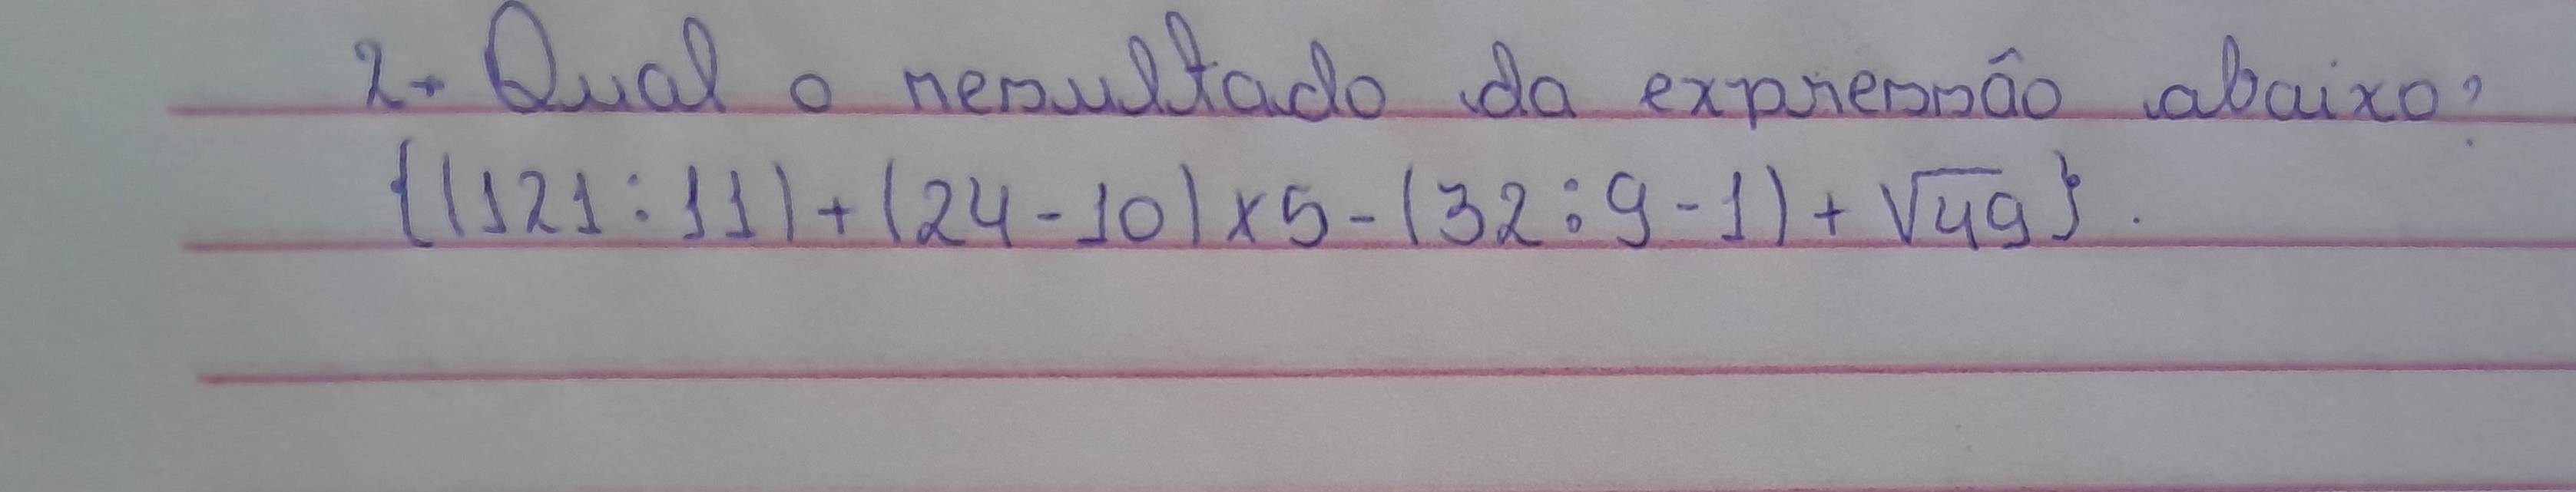 2. Qual o resultado da expressão abaixo?
{(121:11)+(24-10)x5-(32:9-1)+√49}.